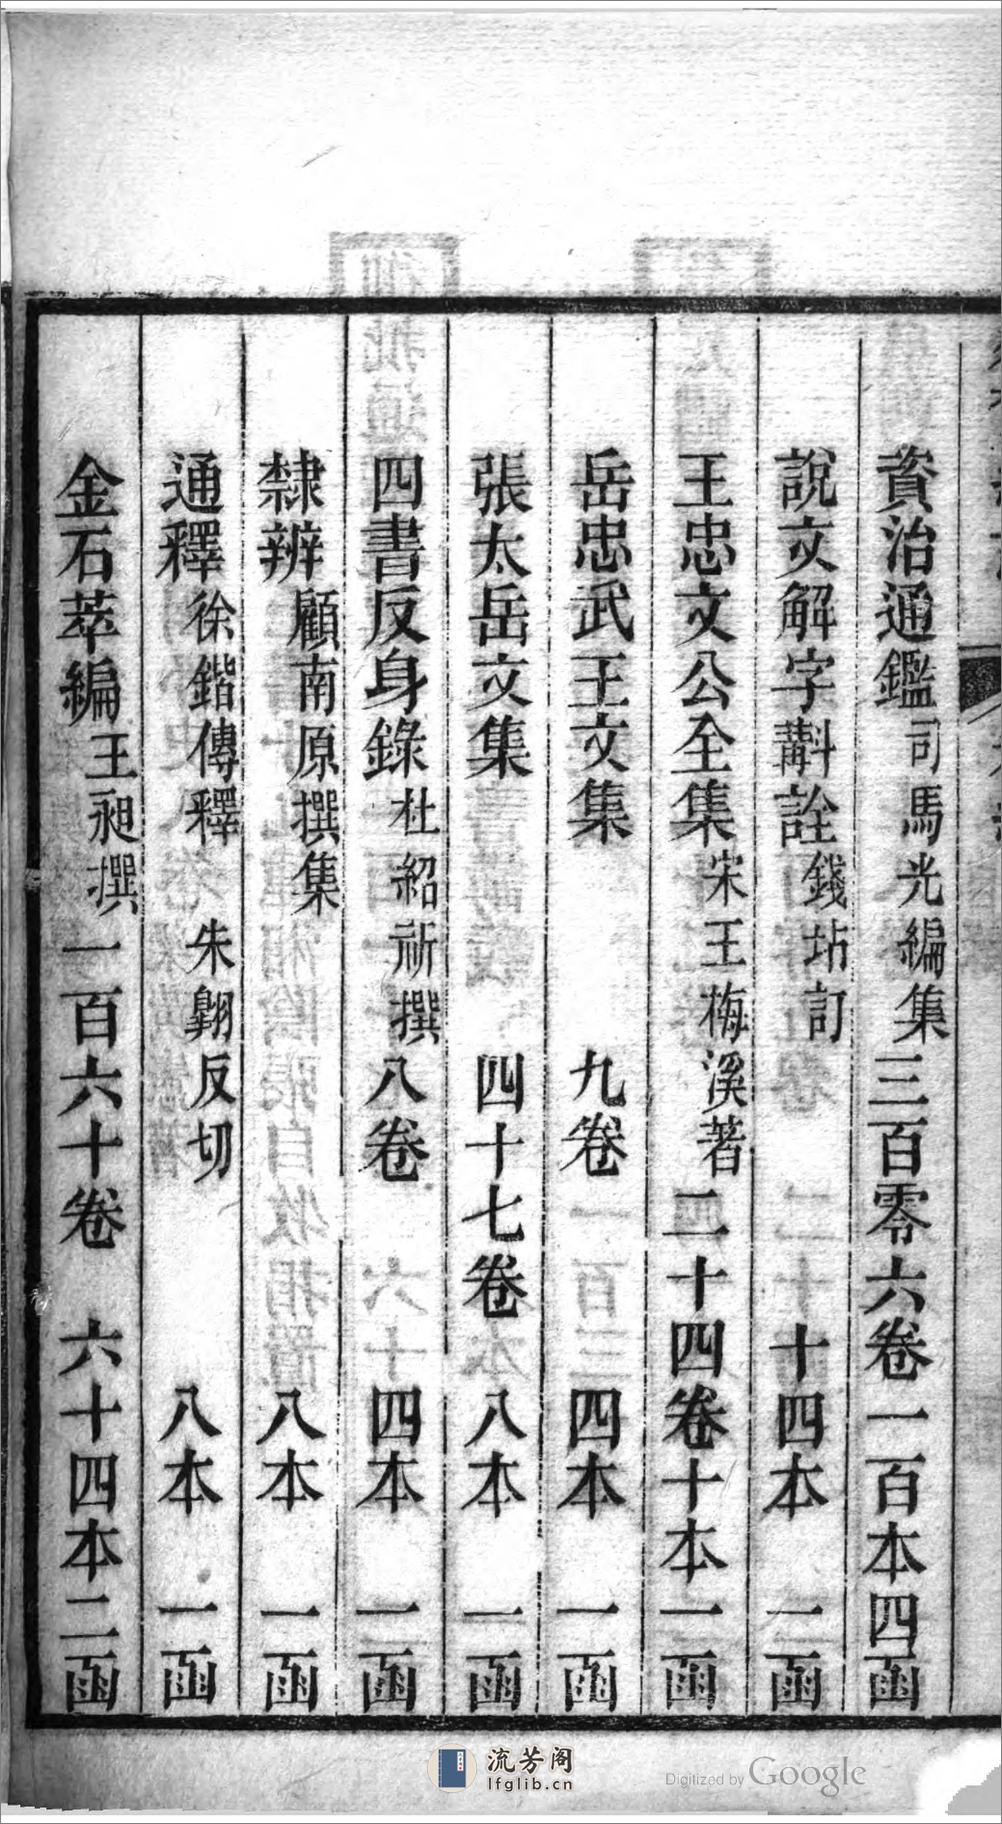 資治通鑑司馬光編集三百零六卷一百本四函
說文解字斠詮錢坫訂十四本二函
王忠文公全集宋王梅溪著二十四卷十本一函
岳忠武王文集九卷四本一函
張太岳文集四十七卷八本一函
四書反身錄杜紹祈撰八卷四本一函
隸辨顧南原撰集八本一函
通釋徐鍇傳釋朱翺反切八本一函
金石萃編王昶撰一百六十卷六十四本二函
流芳阁
lfglib.cn
Digitized by Google